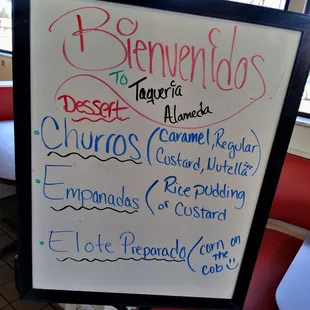 Bienvenidos
To Taqueria
Alameda
Dessert
Churros (Caramel, Regular
Custard, Nutella)
Empanadas (Rice pudding
or Custard
Elote Preparado (corn on
the
cob